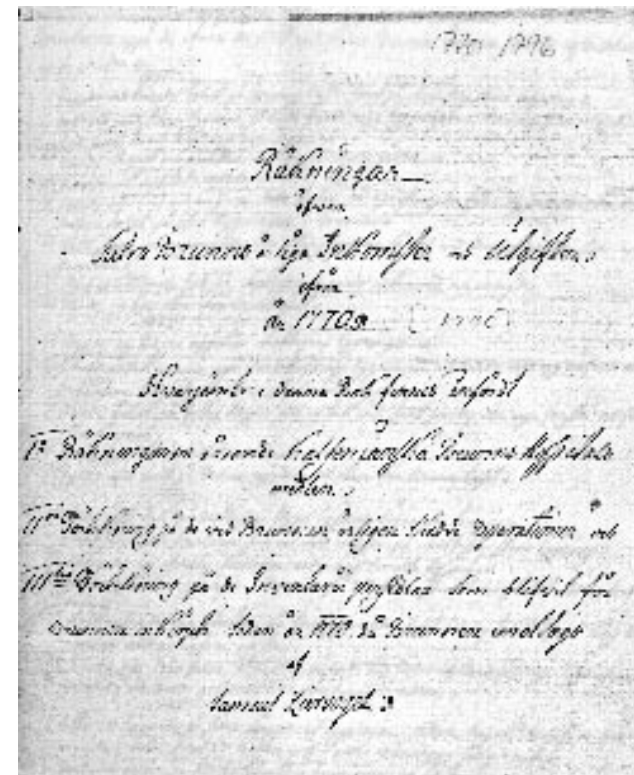 1770-1796
Räkningar
öfver
Sätra Brunns årliga Inkomster och Utgifter,
ifrån
år 1770
Hvarjemte i denna Bok finnes införd
1o Räkningarna rörande Brunns Hospitals
medlen,
IIdo Förteckning på de vid Brunnen årligen skedde Operationer och
IIItio Förteckning på de Inventarii persedlar som blifvit för
Brunnen inköpte sedan år 1770 då Brunnen emottogs
af
Samuel